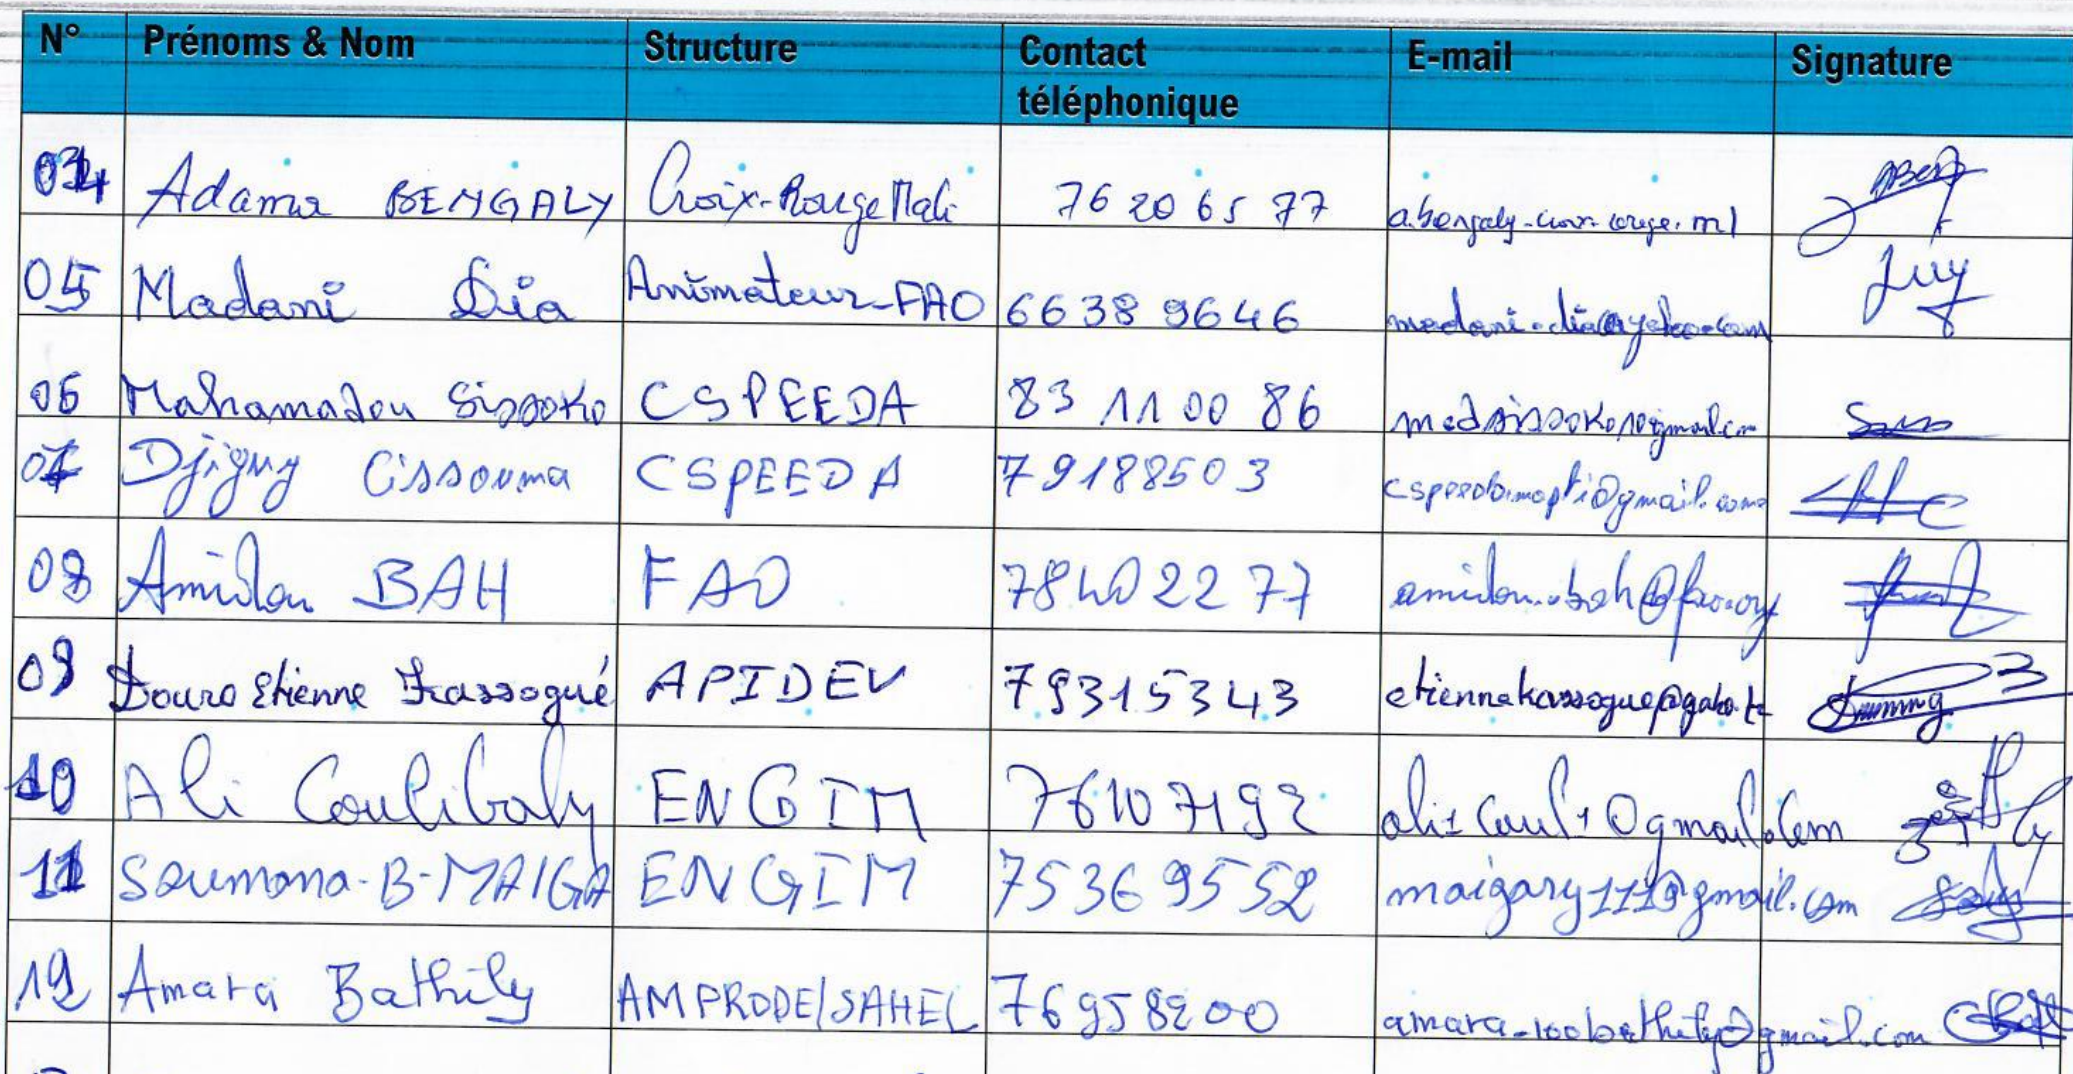 N° Prénoms & Nom Structure Contact téléphonique E-mail Signature
04 Adama BENGALY Croix-Rouge Mali 76 20 65 77
05 Madani Dia Animateur-FAO 66 38 96 46 madani.dia@yahoo.com
06 Mahamadou Sissoko CSPEEDA 83 11 00 86 medsissoko10@gmail.com
07 Djiguy Cissouma CSPEEDA 79188503 cspeedamopti@gmail.com
08 Amidou BAH FAO 78 40 22 77 amidou.bah@fao.org
09 Douro Etienne Kassogué APIDEV 79315343
10 Ali Coulibaly ENGIM 76107192 ali1coul1@gmail.com
11 Soumana-B-MAIGA ENGIM 75369552 maigary111@gmail.com
12 Amara Bathily AMPRODE/SAHEL 76958200 amara-100bathily@gmail.com